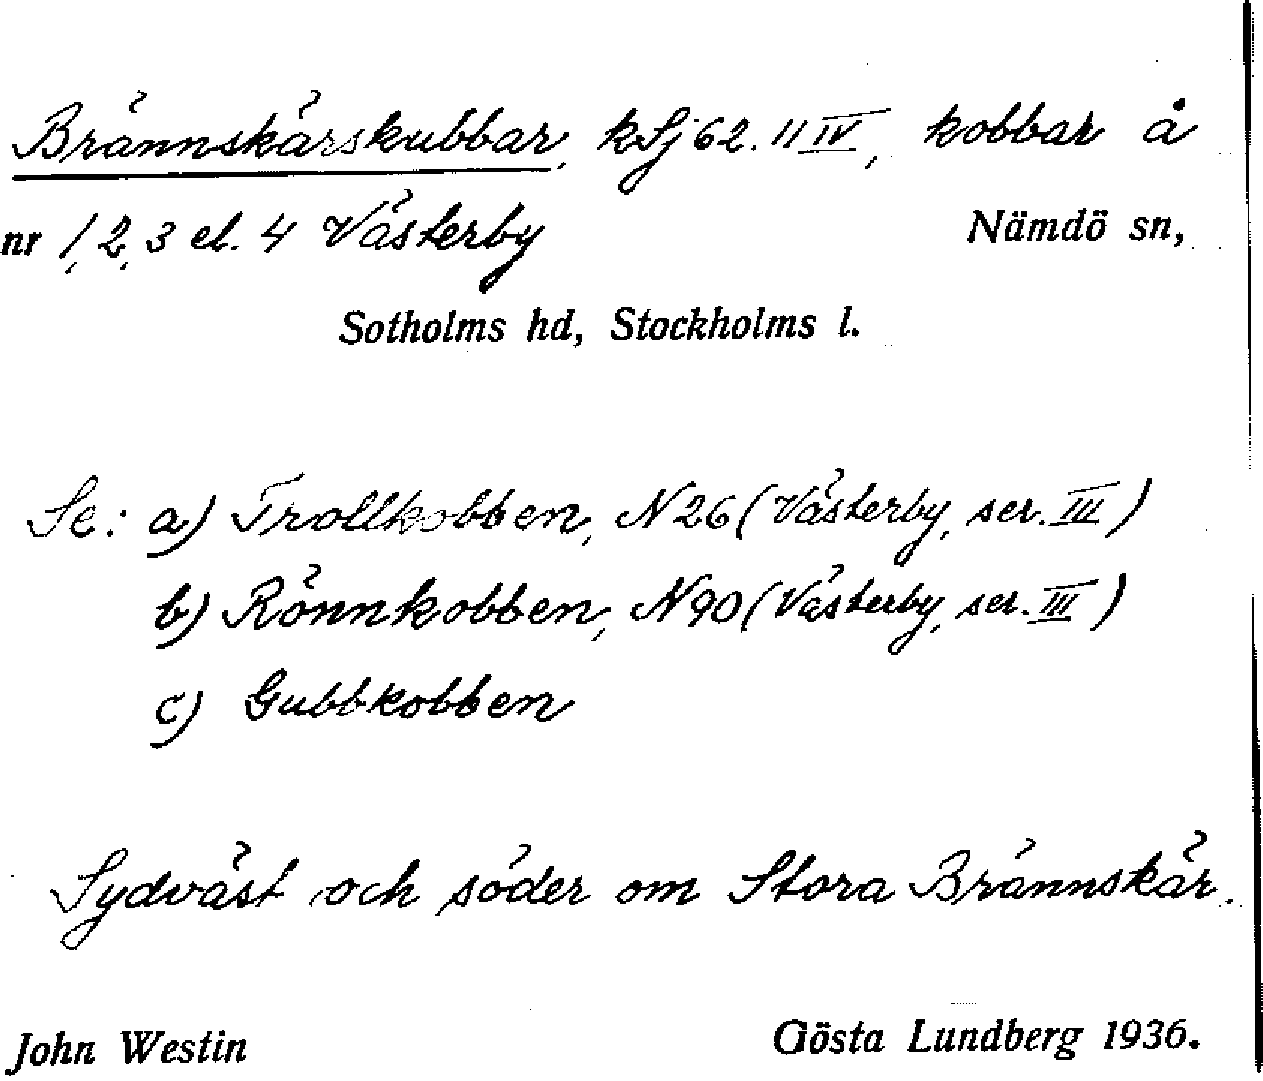 Brännskärskubbar, kSj 62. II IV, kobbar å
nr 1, 2, 3 el. 4 Västerby Nämdö sn,
Sotholms hd, Stockholms l.
Se: a) Trollkobben, N 26 (Västerby, ser. III)
b) Rönnkobben, N 90 (Västerby, ser. III)
c) Gubbkobben
Sydväst och söder om Stora Brännskär.
John Westin Gösta Lundberg 1936.